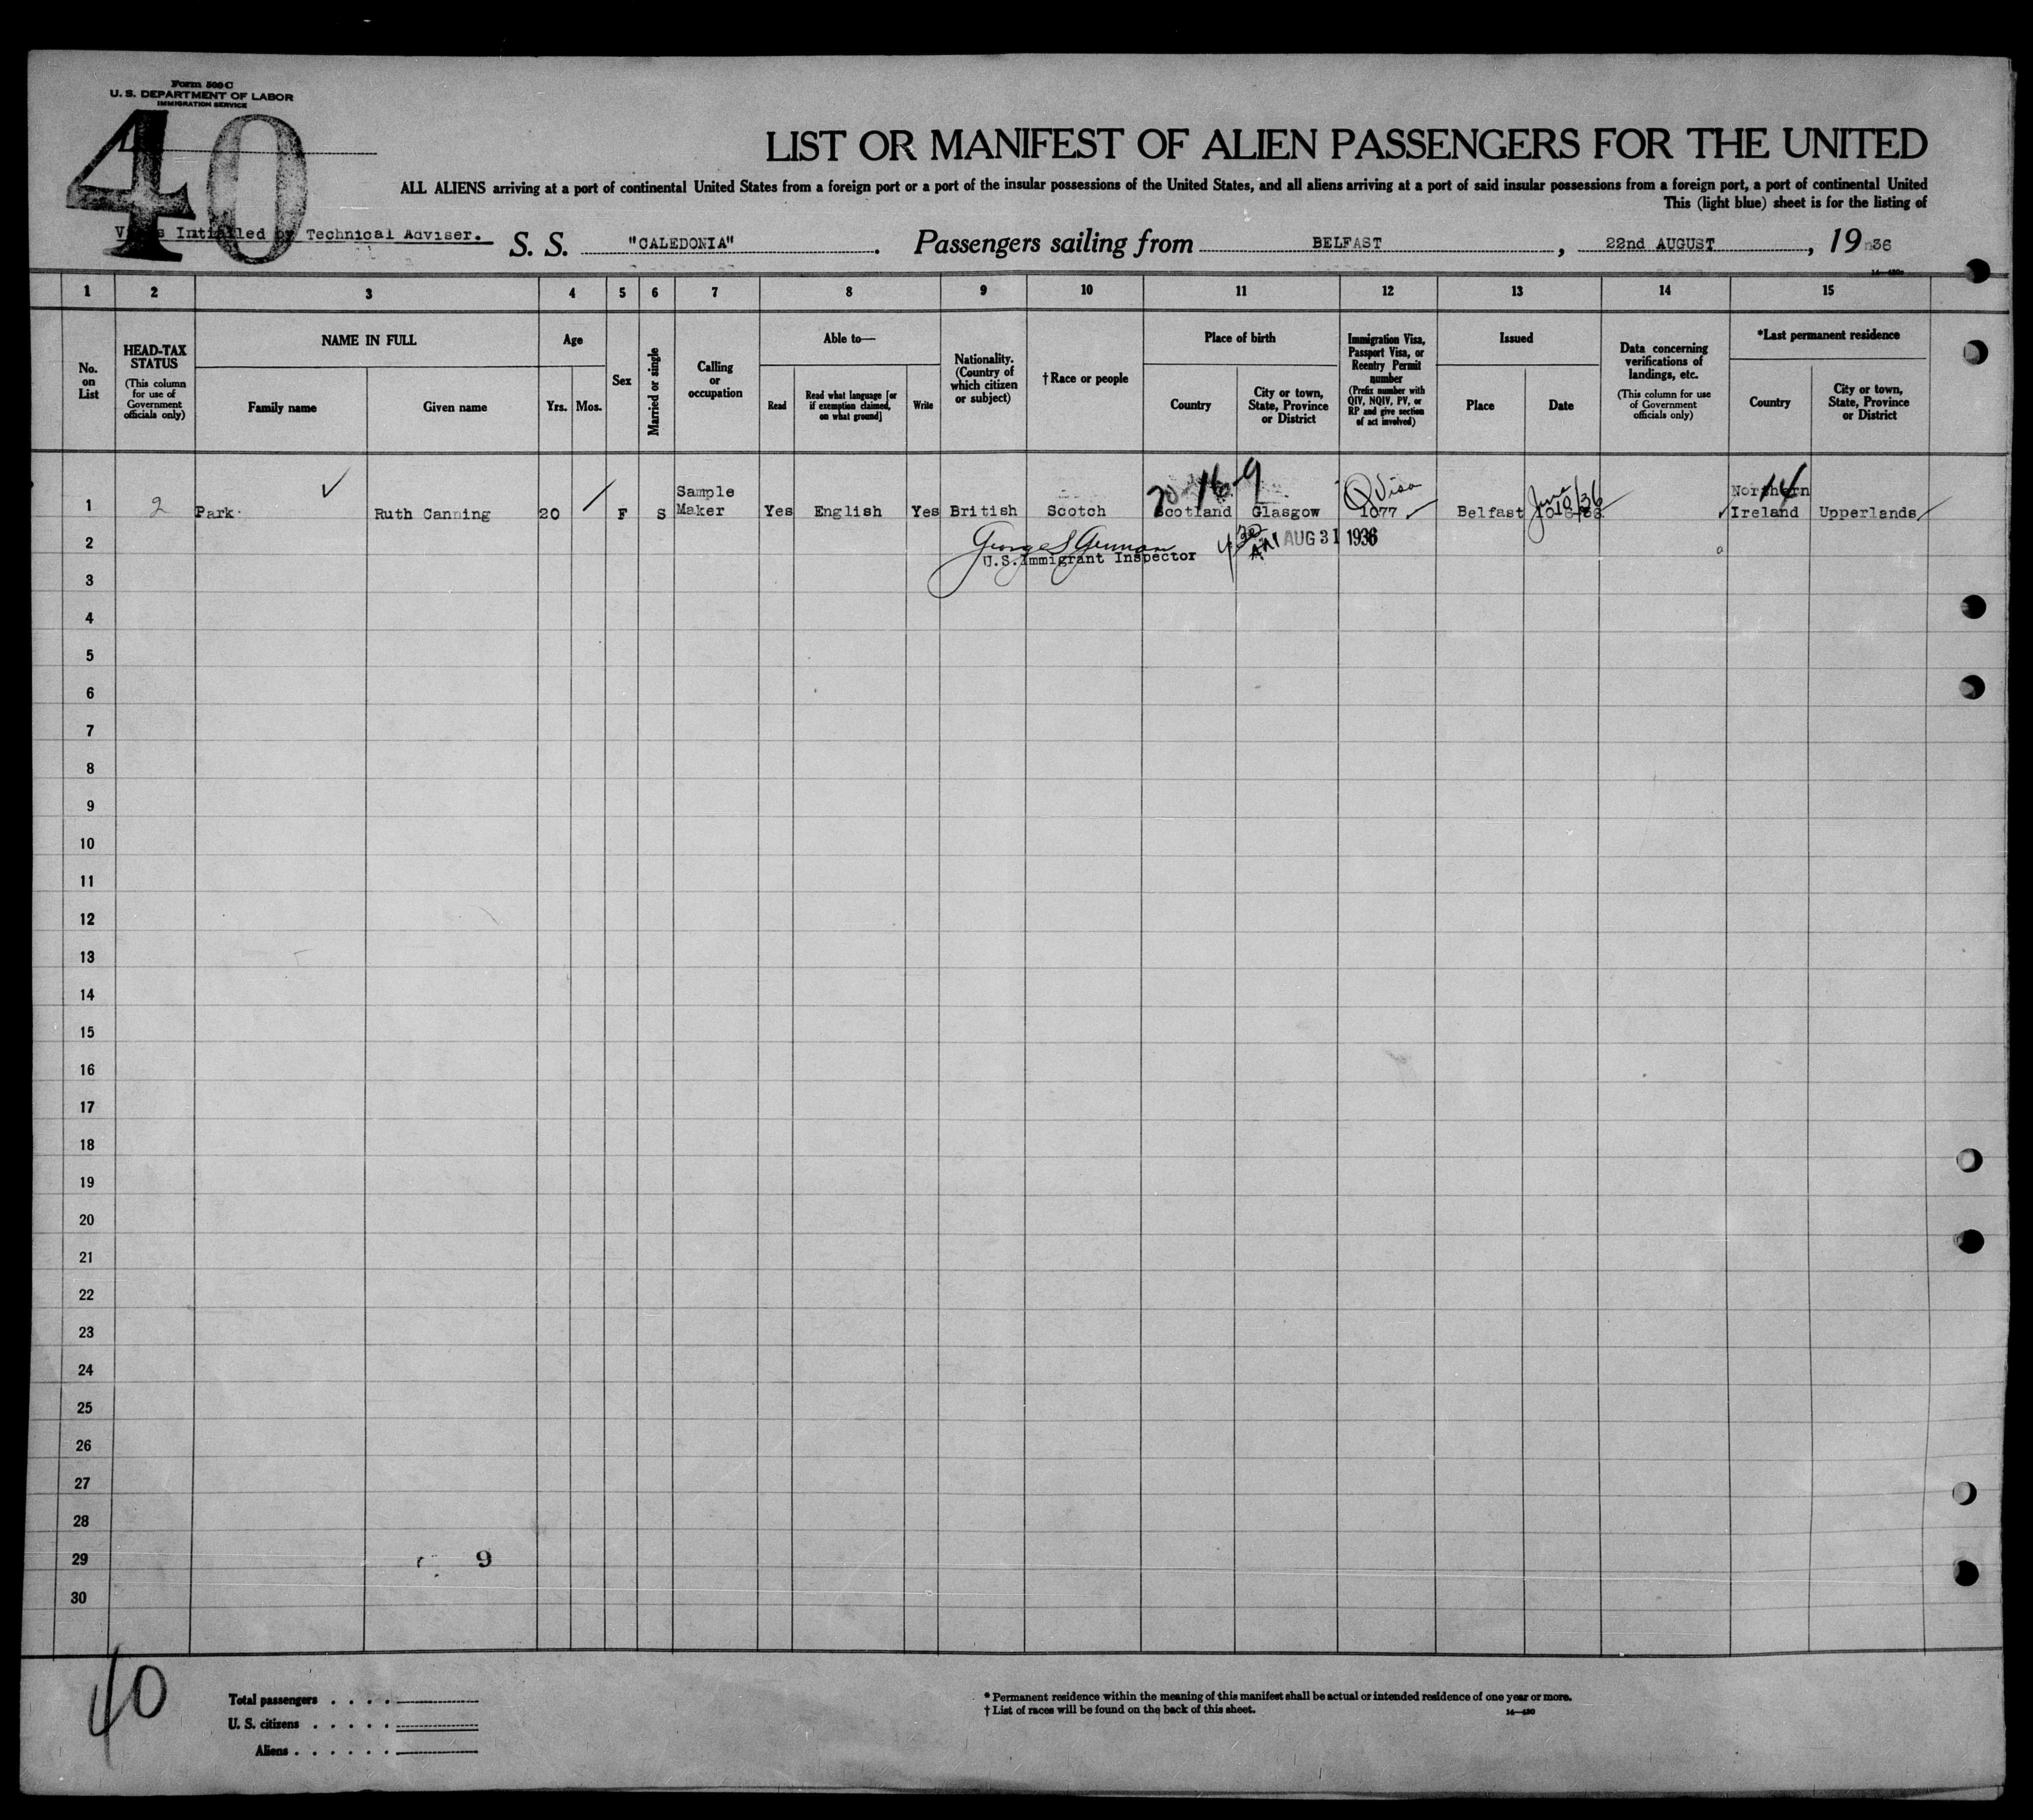 Form 500 C
U. S. DEPARTMENT OF LABOR
IMMIGRATION SERVICE
40
LIST OR MANIFEST OF ALIEN PASSENGERS FOR THE UNITED
ALL ALIENS arriving at a port of continental United States from a foreign port or a port of the insular possessions of the United States, and all aliens arriving at a port of said insular possessions from a foreign port, a port of continental United
This (light blue) sheet is for the listing of
Intialled by Technical Adviser.
S. S. "CALEDONIA". Passengers sailing from BELFAST, 22nd AUGUST, 19 36
1 2 3 4 5 6 7 8 9 10 11 12 13 14 15
No. on List
HEAD-TAX STATUS
(This column for use of Government officials only)
NAME IN FULL
Family name
Given name
Age
Yrs. Mos.
Sex
Married or single
Calling or occupation
Able to—
Read
Read what language [or if exemption claimed, on what ground]
Write
Nationality. (Country of which citizen or subject)
† Race or people
Place of birth
Country
City or town, State, Province or District
Immigration Visa, Passport Visa, or Reentry Permit number
(Prefix number with QIV, NQIV, PV, or RP and give section of act involved)
Issued
Place
Date
Data concerning verifications of landings, etc.
(This column for use of Government officials only)
*Last permanent residence
Country
City or town, State, Province or District
1 2 Park Ruth Canning 20 F S Sample Maker Yes English Yes British Scotch Scotland Glasgow Q Visa 1077 Belfast June 10/36 Northern Ireland Upperlands
16-9
14
2
U.S. Immigrant Inspector
AUG 31 1936
3
4
5
6
7
8
9
10
11
12
13
14
15
16
17
18
19
20
21
22
23
24
25
26
27
28
29 9
30
40
Total passengers . . . .
U. S. citizens . . . . .
Aliens . . . . . .
* Permanent residence within the meaning of this manifest shall be actual or intended residence of one year or more.
† List of races will be found on the back of this sheet.
14—430